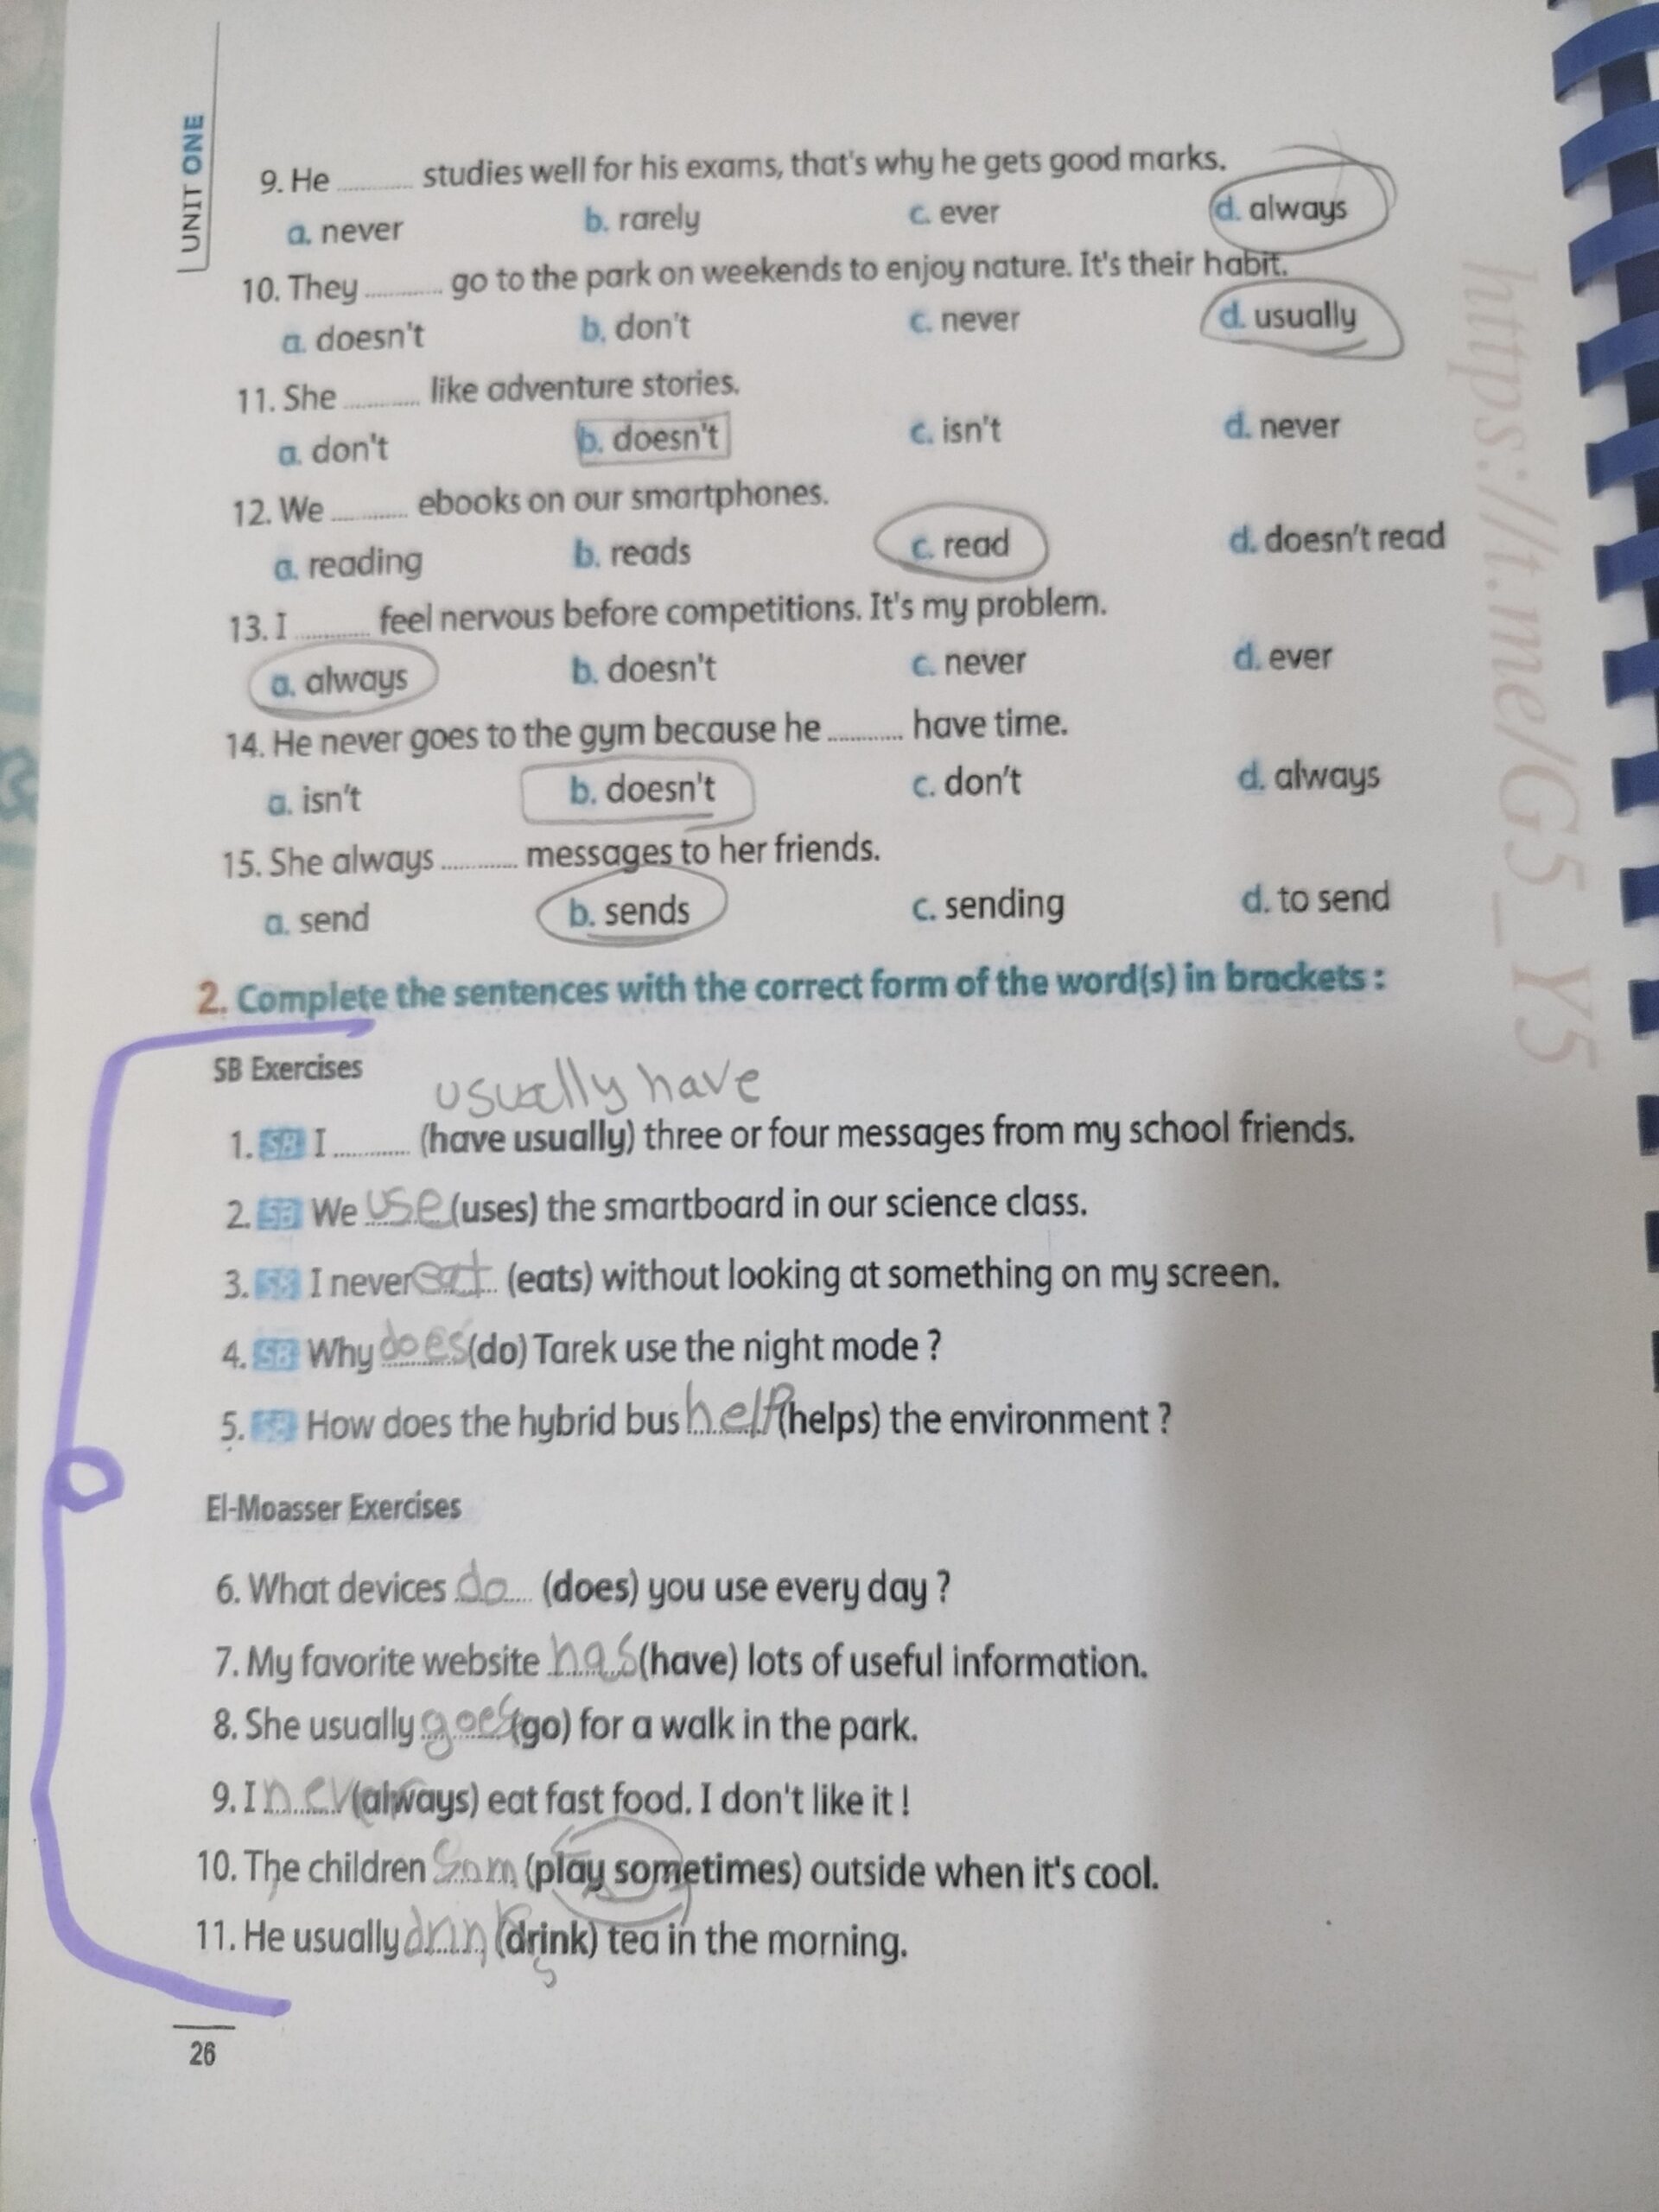 UNIT ONE
9. He ........ studies well for his exams, that's why he gets good marks.
a. never b. rarely c. ever d. always
10. They ........ go to the park on weekends to enjoy nature. It's their habit.
a. doesn't b. don't c. never d. usually
11. She ........ like adventure stories.
a. don't b. doesn't c. isn't d. never
12. We ........ ebooks on our smartphones.
a. reading b. reads c. read d. doesn't read
13. I ........ feel nervous before competitions. It's my problem.
a. always b. doesn't c. never d. ever
14. He never goes to the gym because he ........ have time.
a. isn't b. doesn't c. don't d. always
15. She always ........ messages to her friends.
a. send b. sends c. sending d. to send
2. Complete the sentences with the correct form of the word(s) in brackets :
SB Exercises
usually have
1. SB I ........ (have usually) three or four messages from my school friends.
2. SB We use (uses) the smartboard in our science class.
3. SB I never eat (eats) without looking at something on my screen.
4. SB Why does (do) Tarek use the night mode ?
5. SB How does the hybrid bus help (helps) the environment ?
El-Moasser Exercises
6. What devices do (does) you use every day ?
7. My favorite website has (have) lots of useful information.
8. She usually goes (go) for a walk in the park.
9. I never (always) eat fast food. I don't like it !
10. The children Som (play sometimes) outside when it's cool.
11. He usually drinks (drink) tea in the morning.
26
https://t.me/G5_Y5